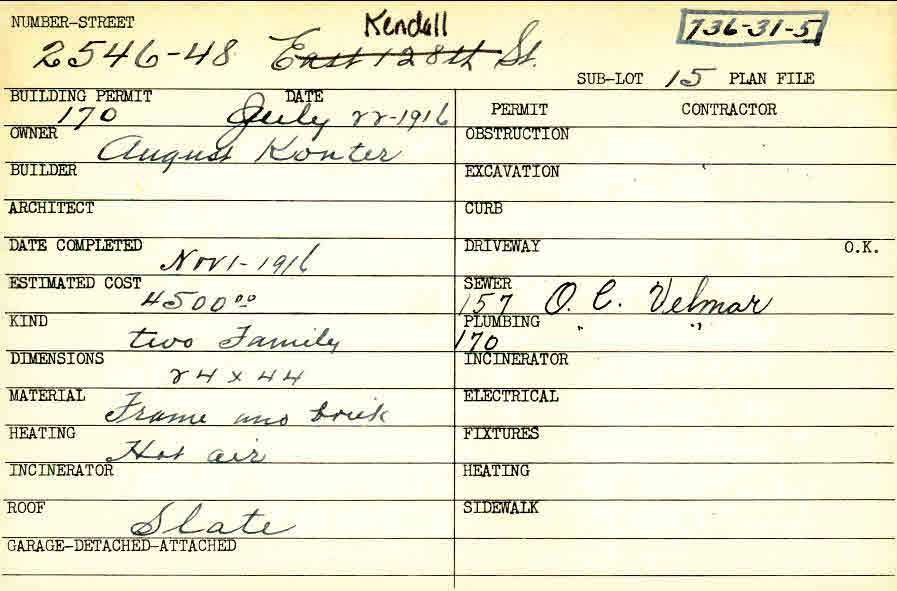 NUMBER-STREET Kendall 736-31-5
2546-48 East 128th St.
SUB-LOT 15 PLAN FILE
BUILDING PERMIT DATE
170 July 22-1916
PERMIT CONTRACTOR
OWNER August Konter
OBSTRUCTION
BUILDER
EXCAVATION
ARCHITECT
CURB
DATE COMPLETED
Nov 1-1916
DRIVEWAY O.K.
ESTIMATED COST
4500.00
SEWER
157 O. C. Velmar
KIND
two Family
PLUMBING " "
170
DIMENSIONS
24 x 44
INCINERATOR
MATERIAL Frame and brick
ELECTRICAL
HEATING
Hot air
FIXTURES
INCINERATOR
HEATING
ROOF
Slate
SIDEWALK
GARAGE-DETACHED-ATTACHED